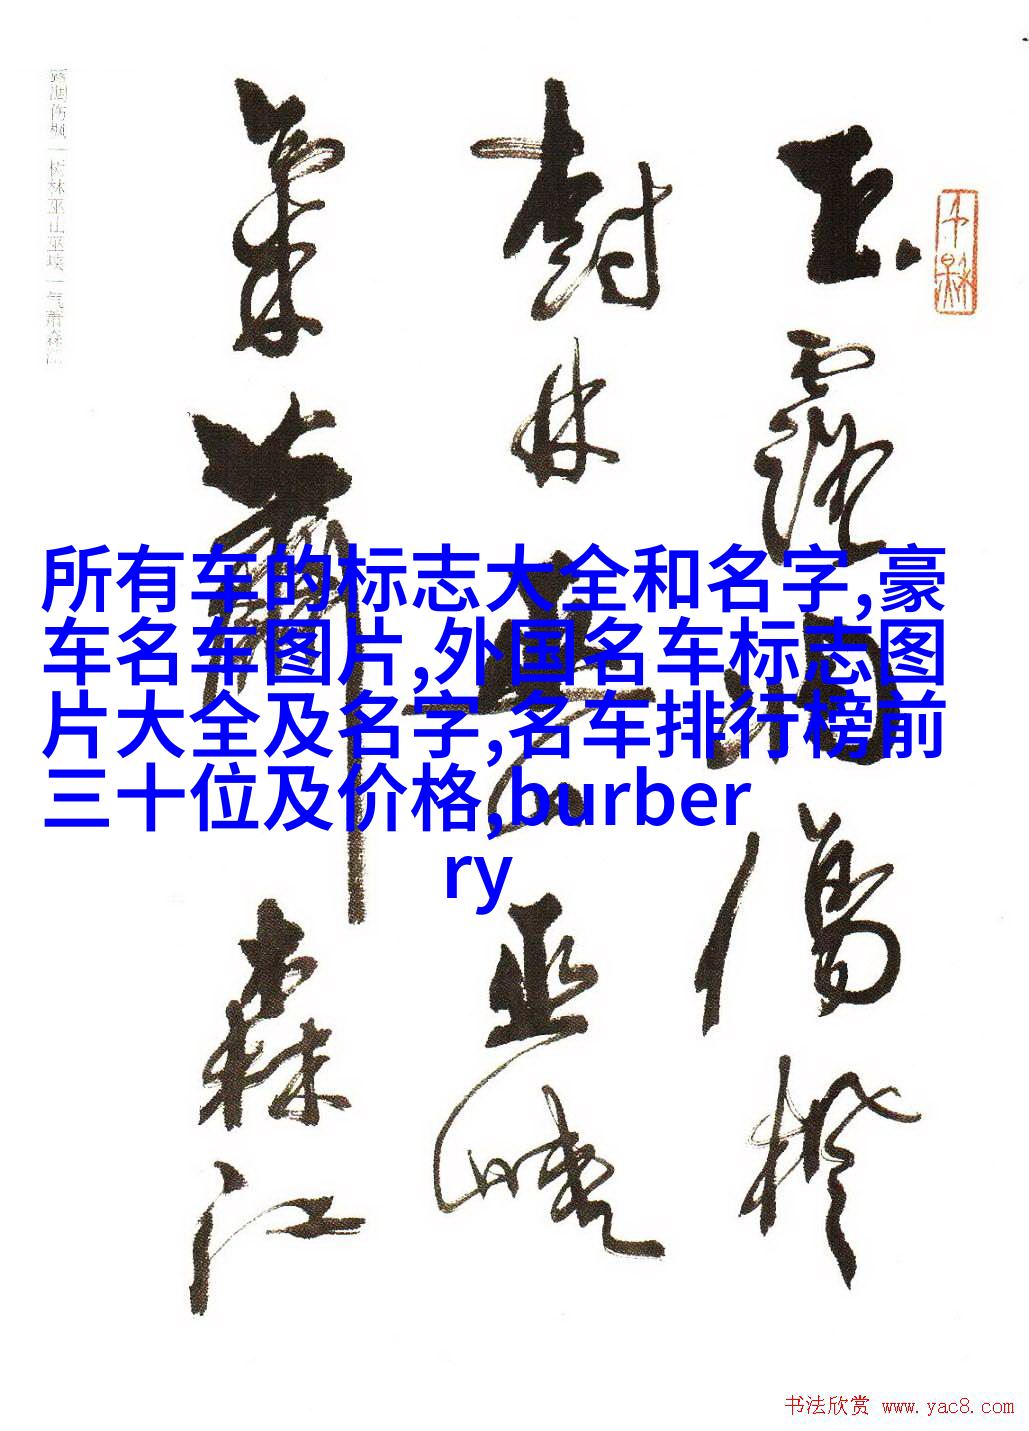 玉露凋傷楓
樹林巫山巫峽
氣蕭森江
所有车的标志大全和名字,豪
车名车图片,外国名车标志图
片大全及名字,名车排行榜前
三十位及价格,burber
ry
书法欣赏 www.yac8.com